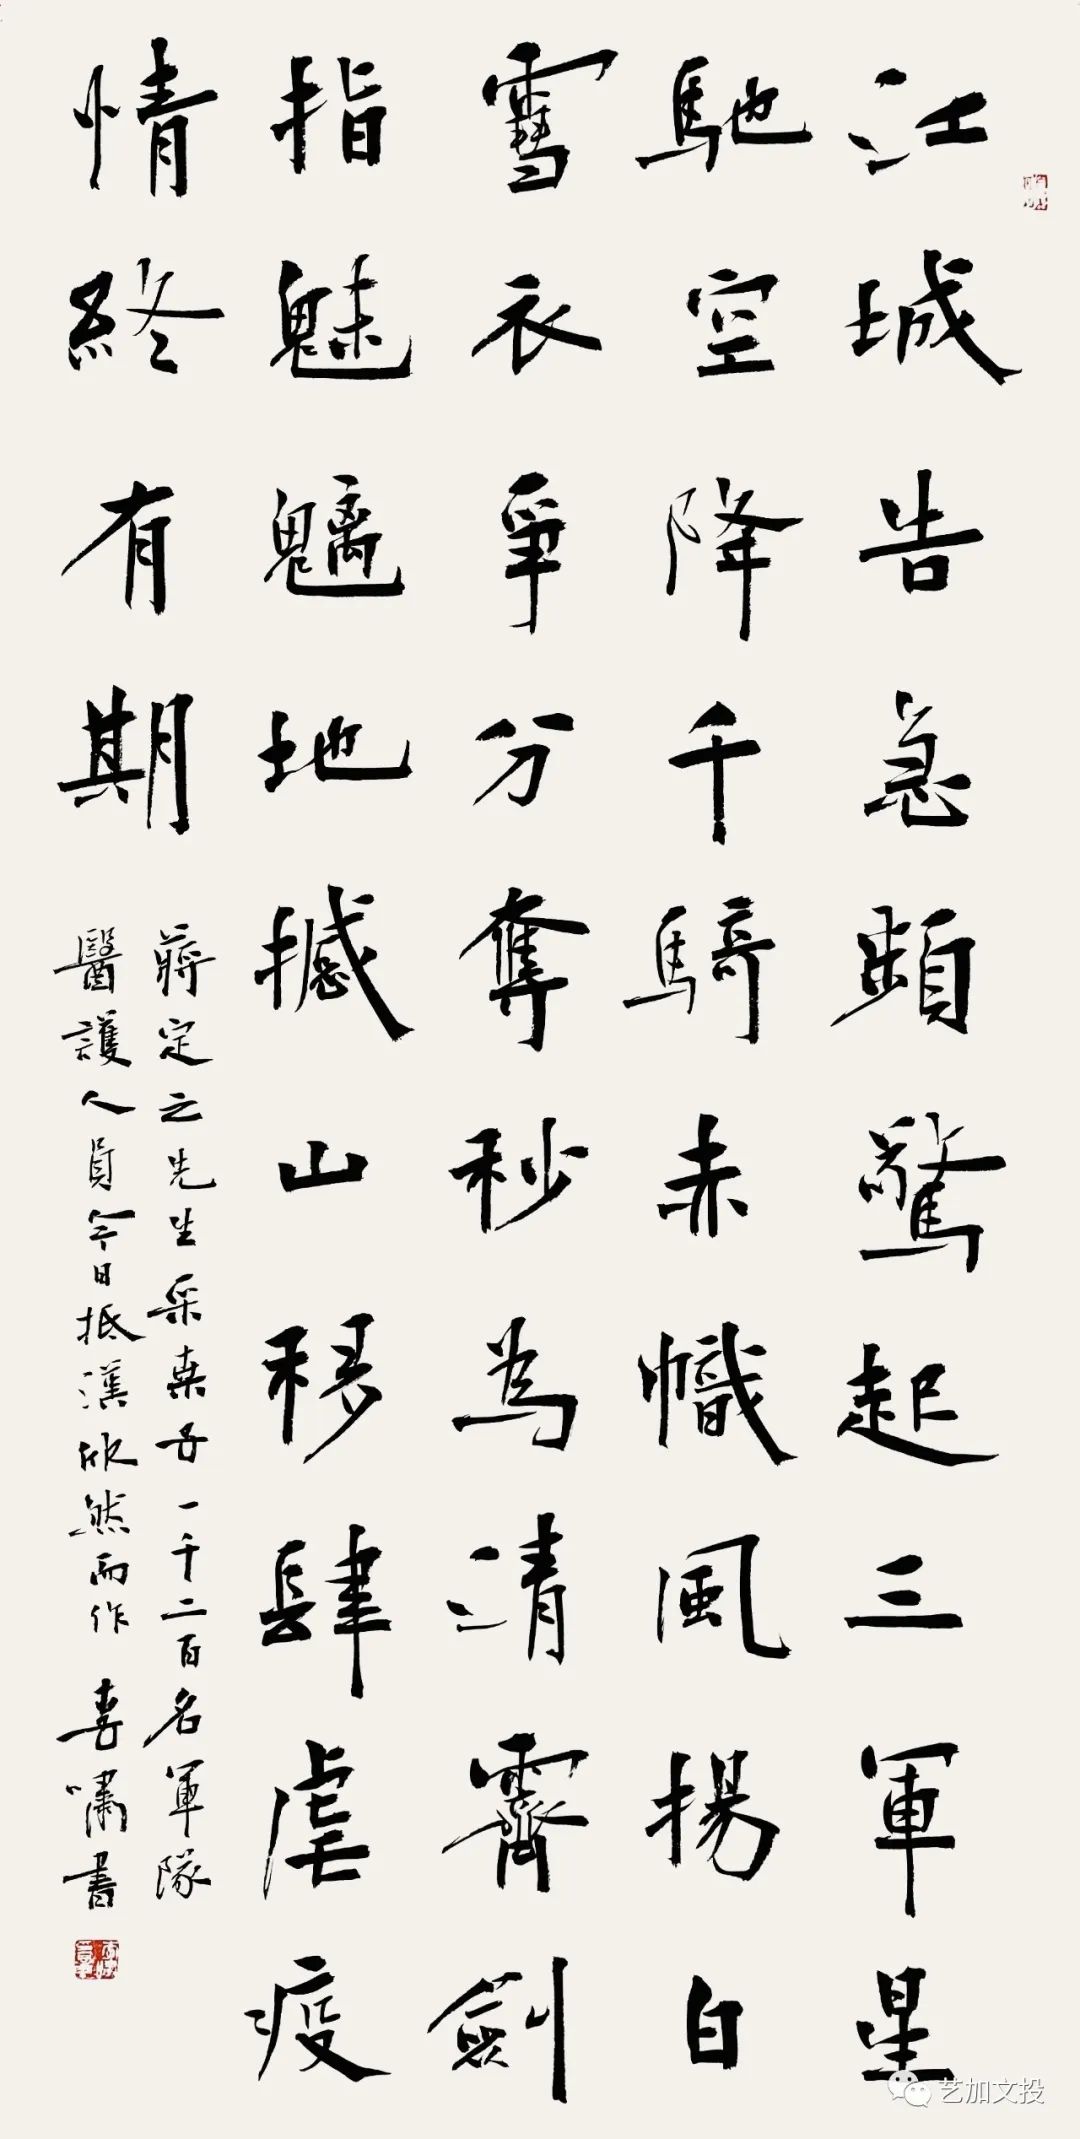 江城告急頻驚起三軍星
馳空降千騎赤幟風揚白
雪衣爭分奪秒為清霽劍
指魅魑地撼山移肆虐疫
情終有期
蔣定之先生采桑子一千二百名軍隊
醫護人員今日抵漢欣然而作 嘯書
艺加文投